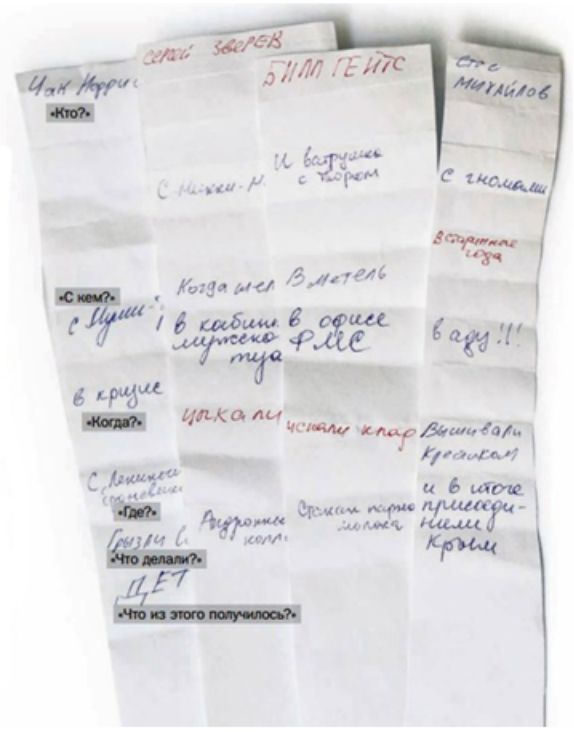 Чак Норрис
«Кто?»
«С кем?»
с Муми-
в кризис
«Когда?»
С Лениного
«Где?»
Грызли
«Что делали?»
ДЕТ
«Что из этого получилось?»
ЗВЕРЕВ
Когда шел
в кабин
мужско
туа
цыкали
БИЛЛ ГЕЙТС
И ватрушка
с твором
В метель
в офисе
ФМС
искали клад
Стакан парно
молока
Стас
МИХАЙЛОВ
с гномами
в старинные
года
в аду!!!
Вышивали
крестиком
и в итоге
присоеди-
нили
Крым